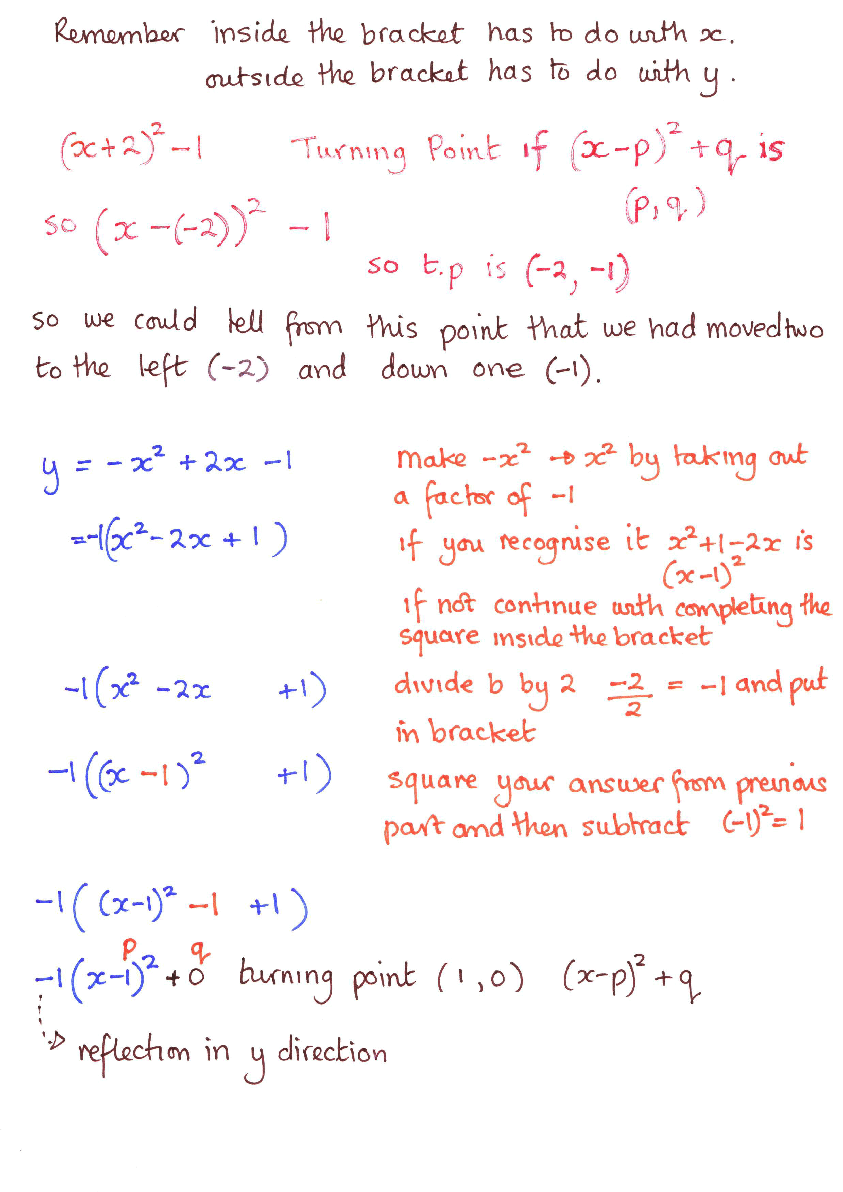 Remember inside the bracket has to do with x.
outside the bracket has to do with y.
(x+2)² -1 Turning Point if (x-p)² + q is
(p, q)
so (x -(-2))² - 1
so t.p is (-2, -1)
so we could tell from this point that we had moved two
to the left (-2) and down one (-1).
y = -x² + 2x - 1 make -x² → x² by taking out
a factor of -1
= -1(x² - 2x + 1) if you recognise it x²+1-2x is
(x-1)²
if not continue with completing the
square inside the bracket
-1(x² - 2x +1) divide b by 2 -2/2 = -1 and put
in bracket
-1((x -1)² +1) square your answer from previous
part and then subtract (-1)² = 1
-1((x-1)² -1 +1)
p q
-1(x-1)² + 0 turning point (1, 0) (x-p)² + q
reflection in y direction